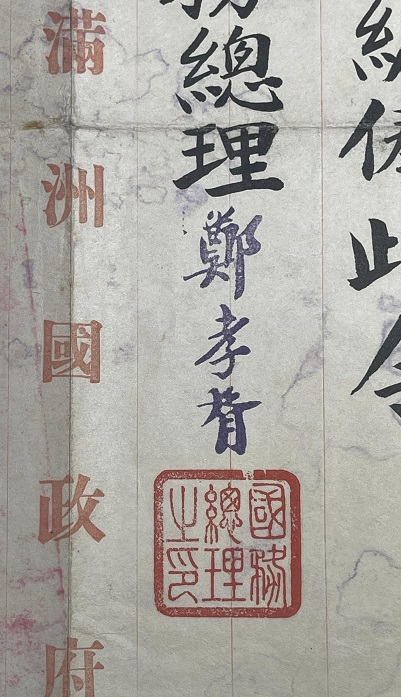 此令
務總理鄭孝胥
國務
總理
之印
滿洲國政府